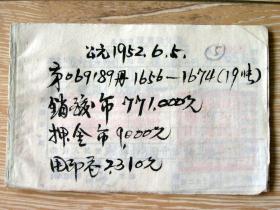 公元1952.6.5.
⑤
第069189册1656—1674(19帖)
销骏币771.000元
押金币9.000元
用印卷2310元